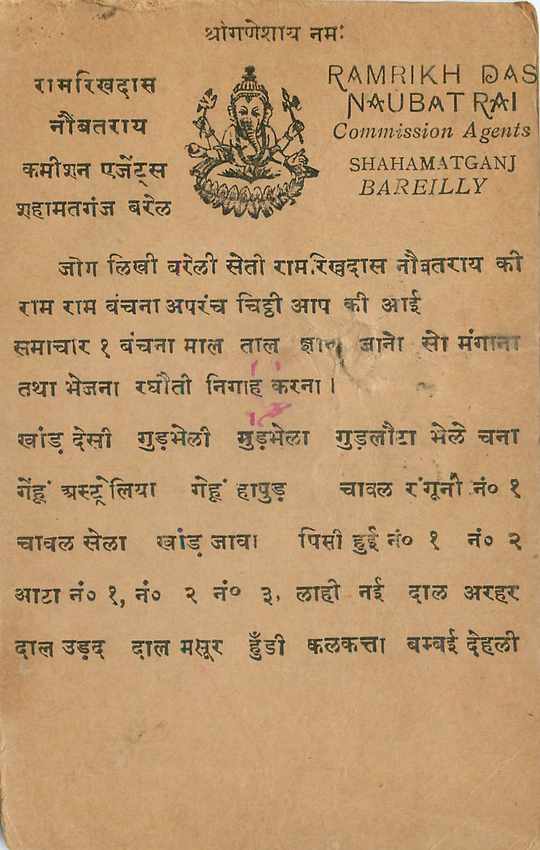 श्रीगणेशाय नमः
रामरिखदास
नौबतराय
कमीशन एजेंट्स
शहामतगंज बरेल
RAMRIKH DAS
NAUBAT RAI
Commission Agents
SHAHAMATGANJ
BAREILLY
जोग लिखी बरेली सेती रामरिखदास नौबतराय की
राम राम बंचना अपरंच चिट्ठी आप की आई
समाचार १ बंचना माल ताल जानो सो मंगाना
तथा भेजना रघौती निगाह करना।
खांड़ देसी गुड़भेली गुड़भेला गुड़लौटा भेले चना
गेंहूं अस्ट्रेलिया गेहूं हापुड़ चावल रंगूनी नं० १
चावल सेला खांड़ जावा पिसी हुई नं० १ नं० २
आटा नं० १, नं० २ नं० ३. लाही नई दाल अरहर
दाल उड़द दाल मसूर हुँडी कलकत्ता बम्बई देहली